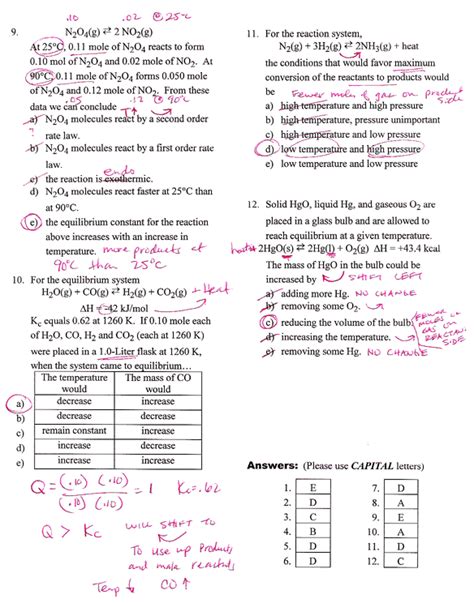 .10 .02 @ 25°C
9. N2O4(g) ⇄ 2 NO2(g)
At 25°C, 0.11 mole of N2O4 reacts to form
0.10 mol of N2O4 and 0.02 mole of NO2. At
90°C, 0.11 mole of N2O4 forms 0.050 mole
of N2O4 and 0.12 mole of NO2. From these
.05 .12 @ 90°C
data we can conclude
a) N2O4 molecules react by a second order
rate law.
b) N2O4 molecules react by a first order rate
law.
endo
c) the reaction is exothermic.
d) N2O4 molecules react faster at 25°C than
at 90°C.
e) the equilibrium constant for the reaction
above increases with an increase in
temperature. more products at
90°C than 25°C
10. For the equilibrium system
H2O(g) + CO(g) ⇄ H2(g) + CO2(g) + Heat
ΔH = -42 kJ/mol
Kc equals 0.62 at 1260 K. If 0.10 mole each
of H2O, CO, H2 and CO2 (each at 1260 K)
were placed in a 1.0-Liter flask at 1260 K,
when the system came to equilibrium…
The temperature would The mass of CO would
a) decrease increase
b) decrease decrease
c) remain constant increase
d) increase decrease
e) increase increase
Q = (.10)(.10) / (.10)(.10) = 1 Kc = .62
Q > Kc will shift to
to use up products
and make reactants
Temp ↓ CO ↑
11. For the reaction system,
N2(g) + 3H2(g) ⇄ 2NH3(g) + heat
the conditions that would favor maximum
conversion of the reactants to products would
be Fewer moles of gas on product
side
a) high temperature and high pressure
b) high temperature, pressure unimportant
c) high temperature and low pressure
d) low temperature and high pressure
e) low temperature and low pressure
12. Solid HgO, liquid Hg, and gaseous O2 are
placed in a glass bulb and are allowed to
reach equilibrium at a given temperature.
heat + 2HgO(s) ⇄ 2Hg(l) + O2(g) ΔH = +43.4 kcal
The mass of HgO in the bulb could be
increased by SHIFT LEFT
a) adding more Hg. NO CHANGE
b) removing some O2.
c) reducing the volume of the bulb.
FEWER
MOLES OF
GAS ON
REACTANT
SIDE
d) increasing the temperature.
e) removing some Hg. NO CHANGE
Answers: (Please use CAPITAL letters)
1. E 7. D
2. D 8. A
3. C 9. E
4. B 10. A
5. D 11. D
6. D 12. C